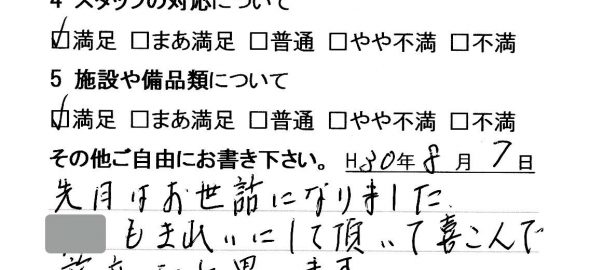 4 スタッフの対応について
☑満足 □まあ満足 □普通 □やや不満 □不満
5 施設や備品類について
☑満足 □まあ満足 □普通 □やや不満 □不満
その他ご自由にお書き下さい。 H30年8月7日
先月はお世話になりました
もきれいにして頂いて喜こんで
思 ます